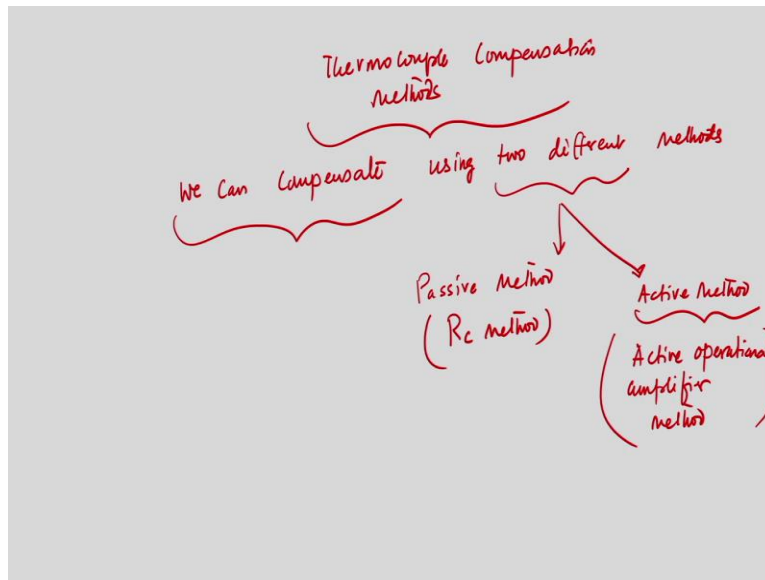 Thermocouple Compensation
Methods
We Can Compensate using two different methods
Passive Method
(Rc method)
Active Method
(Active operational
amplifier
method)